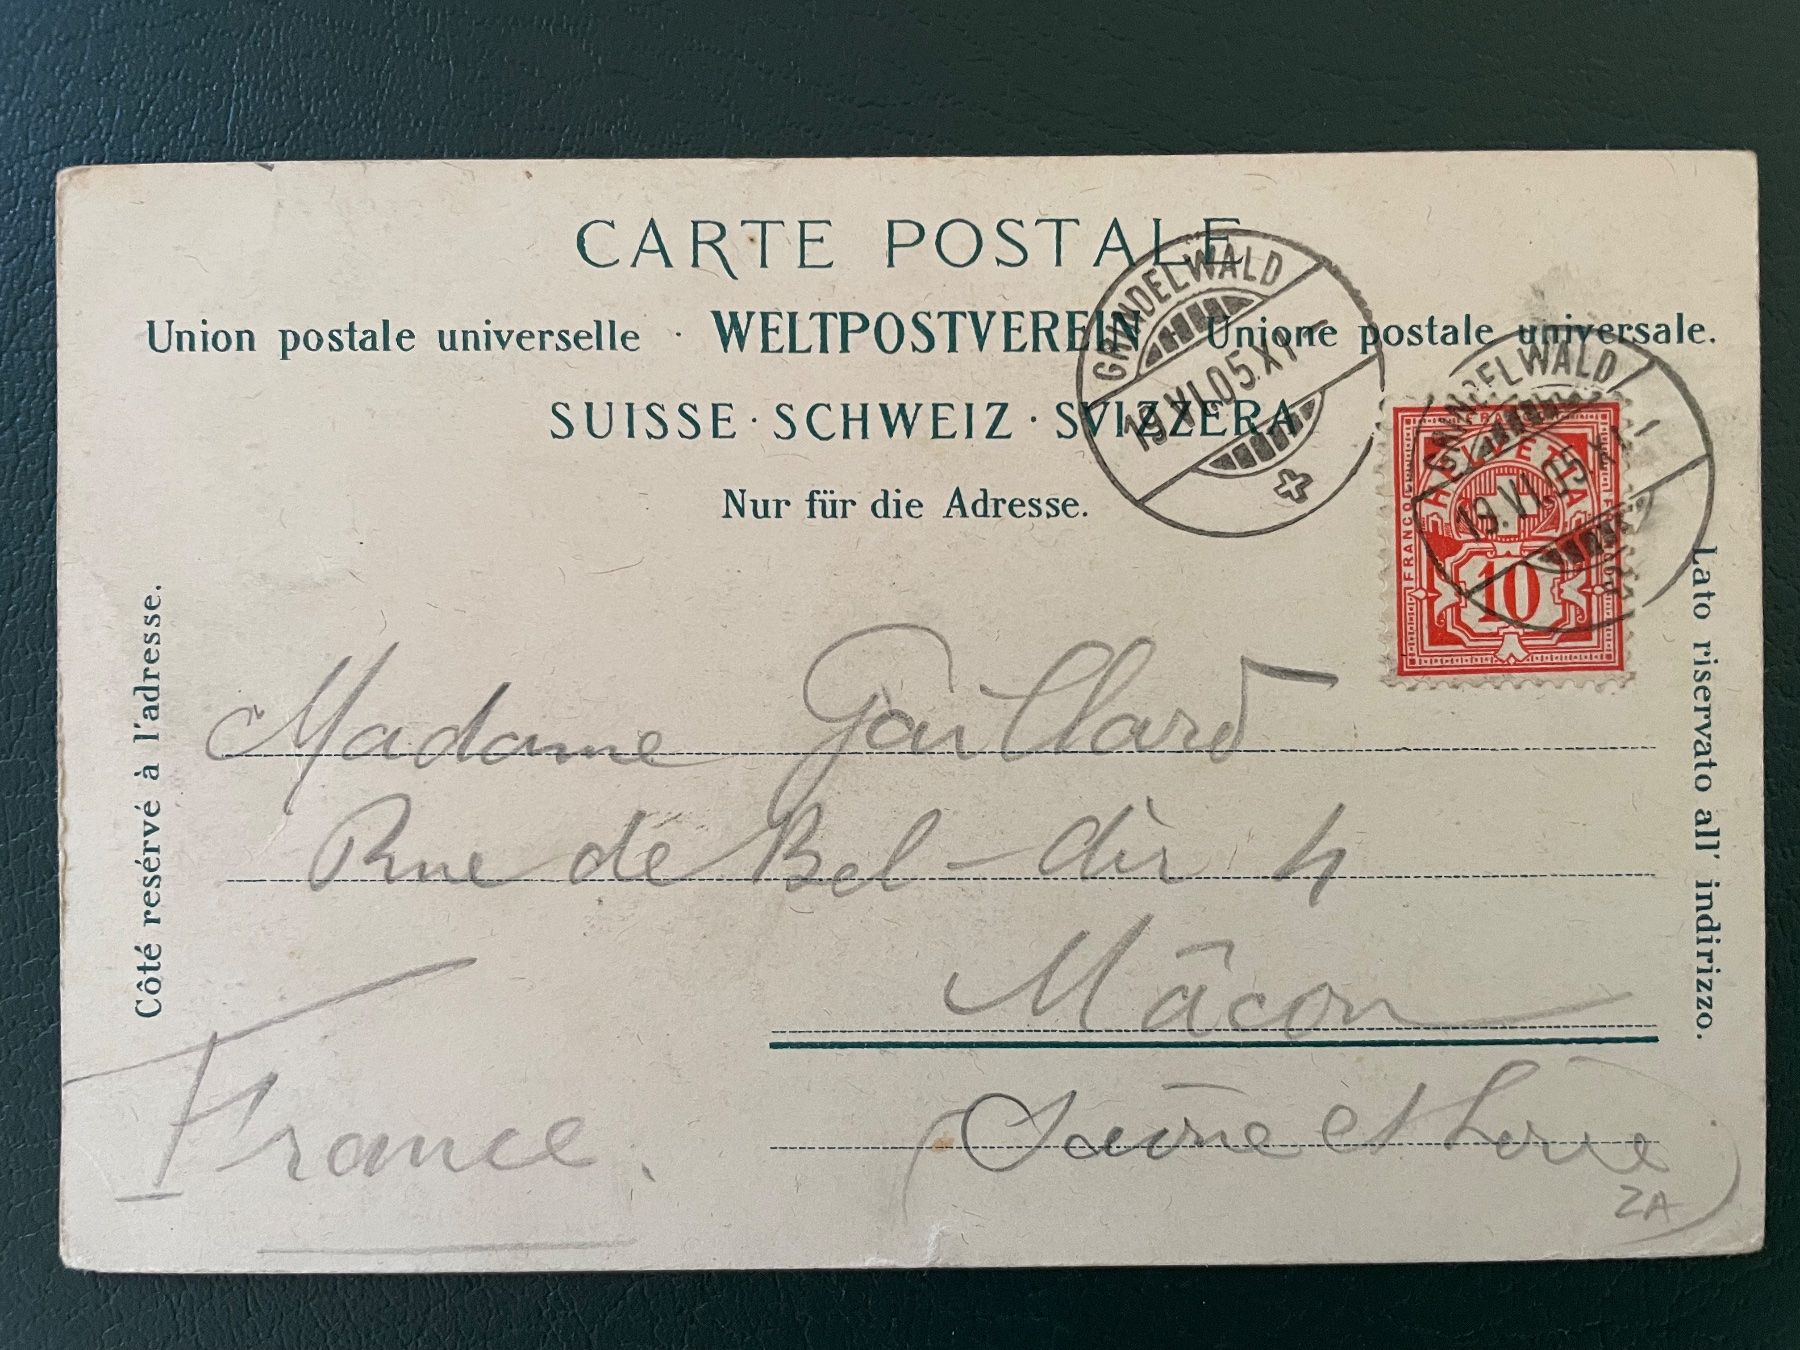 CARTE POSTALE
Union postale universelle · WELTPOSTVEREIN · Unione postale universale.
SUISSE · SCHWEIZ · SVIZZERA
Nur für die Adresse.
GRINDELWALD
19.VI.05.XI
GRINDELWALD
19.VI.05.XI
FRANCO
HELVETIA
10
Côté resérvé à l'adresse.
Lato riservato all' indirizzo.
Madame Gaillard
Rue de Bel-Air 4
Mâcon
France.
(Saône et Loire)
ZA